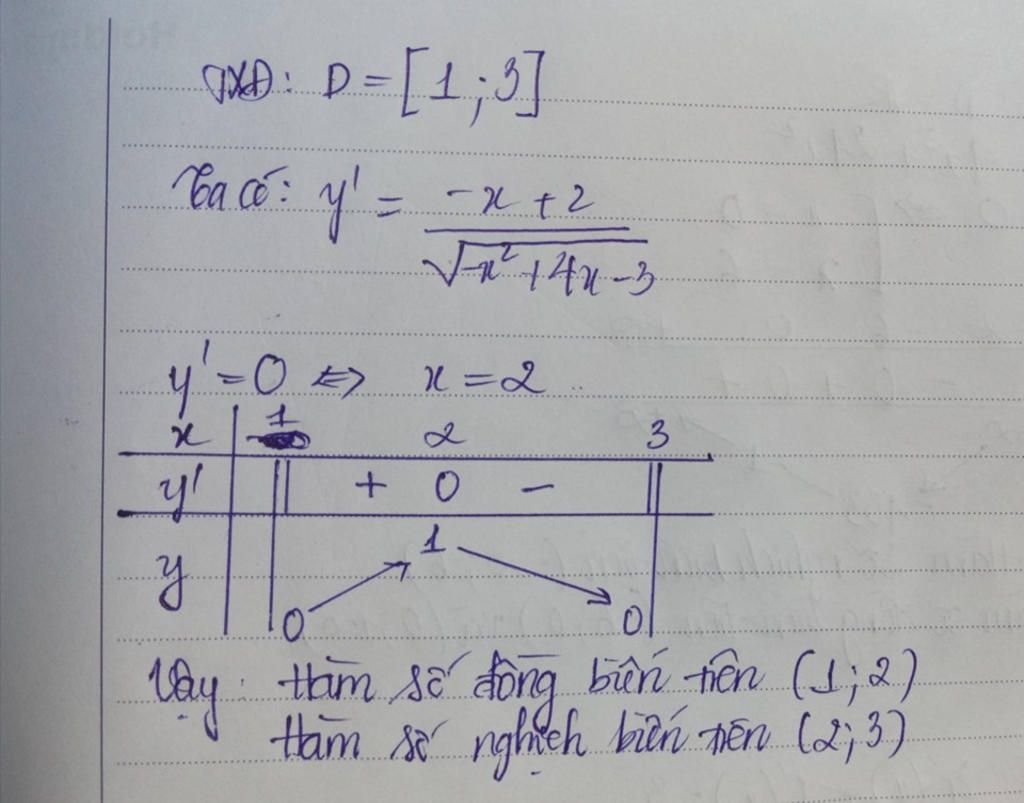 TXĐ: D = [1; 3]
Ta có: y' = \frac{-x + 2}{\sqrt{-x² + 4x - 3}}
y' = 0 <=> x = 2
x 1 2 3
y' || + 0 - ||
y 0 ↗ 1 ↘ 0
Vậy: Hàm số đồng biến trên (1; 2)
Hàm số nghịch biến trên (2; 3)